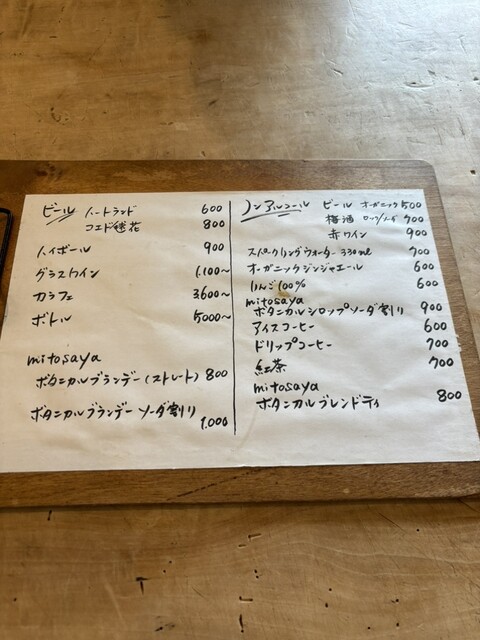 ビール ハートランド 600
コエド毬花 800
ハイボール 900
グラスワイン 1.100〜
カラフェ 3.600〜
ボトル 5000〜
mitosaya
ボタニカルブランデー(ストレート) 800
ボタニカルブランデー ソーダ割り
1.000
ノンアルコール ビール オーガニック 500
梅酒 ロック/ソーダ 700
赤ワイン 900
スパークリングウォーター 330ml 700
オーガニックジンジャエール 600
りんご100% 600
mitosaya
ボタニカルシロップソーダ割り 900
アイスコーヒー 600
ドリップコーヒー 700
紅茶 700
mitosaya
ボタニカルブレンドティ 800